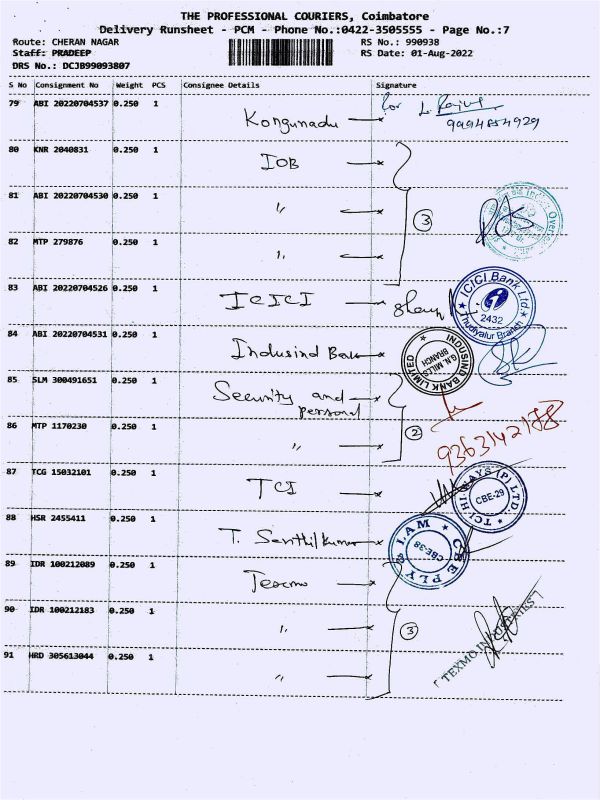 THE PROFESSIONAL COURIERS, Coimbatore
Delivery Runsheet - PCM - Phone No.:0422-3505555 - Page No.:7
Route: CHERAN NAGAR
Staff: PRADEEP
DRS No.: DCJB99093807
RS No.: 990938
RS Date: 01-Aug-2022
S No Consignment No Weight PCS Consignee Details Signature
79 ABI 20220704537 0.250 1 Kongunadu
9994854929
80 KNR 2040831 0.250 1 IOB
81 ABI 20220704530 0.250 1 "
3
82 MTP 279876 0.250 1 "
83 ABI 20220704526 0.250 1 ICICI
ICICI Bank Ltd. 2432 Thudiyalur Branch
84 ABI 20220704531 0.250 1 Indusind Bank
INDUSIND BANK LIMITED G.N. MILLS BRANCH
85 SLM 300491651 0.250 1 Security and
personal
86 MTP 1170230 0.250 1 "
2
9363142178
87 TCG 15032101 0.250 1 TCI
TCI HI-WAYS (P) LTD CBE-29
88 HSR 2455411 0.250 1 T. Senthilkumar
CBE-38
89 IDR 100212089 0.250 1 Texmo
90 IDR 100212183 0.250 1 "
3
91 HRD 305613044 0.250 1 "
TEXMO INDUSTRIES